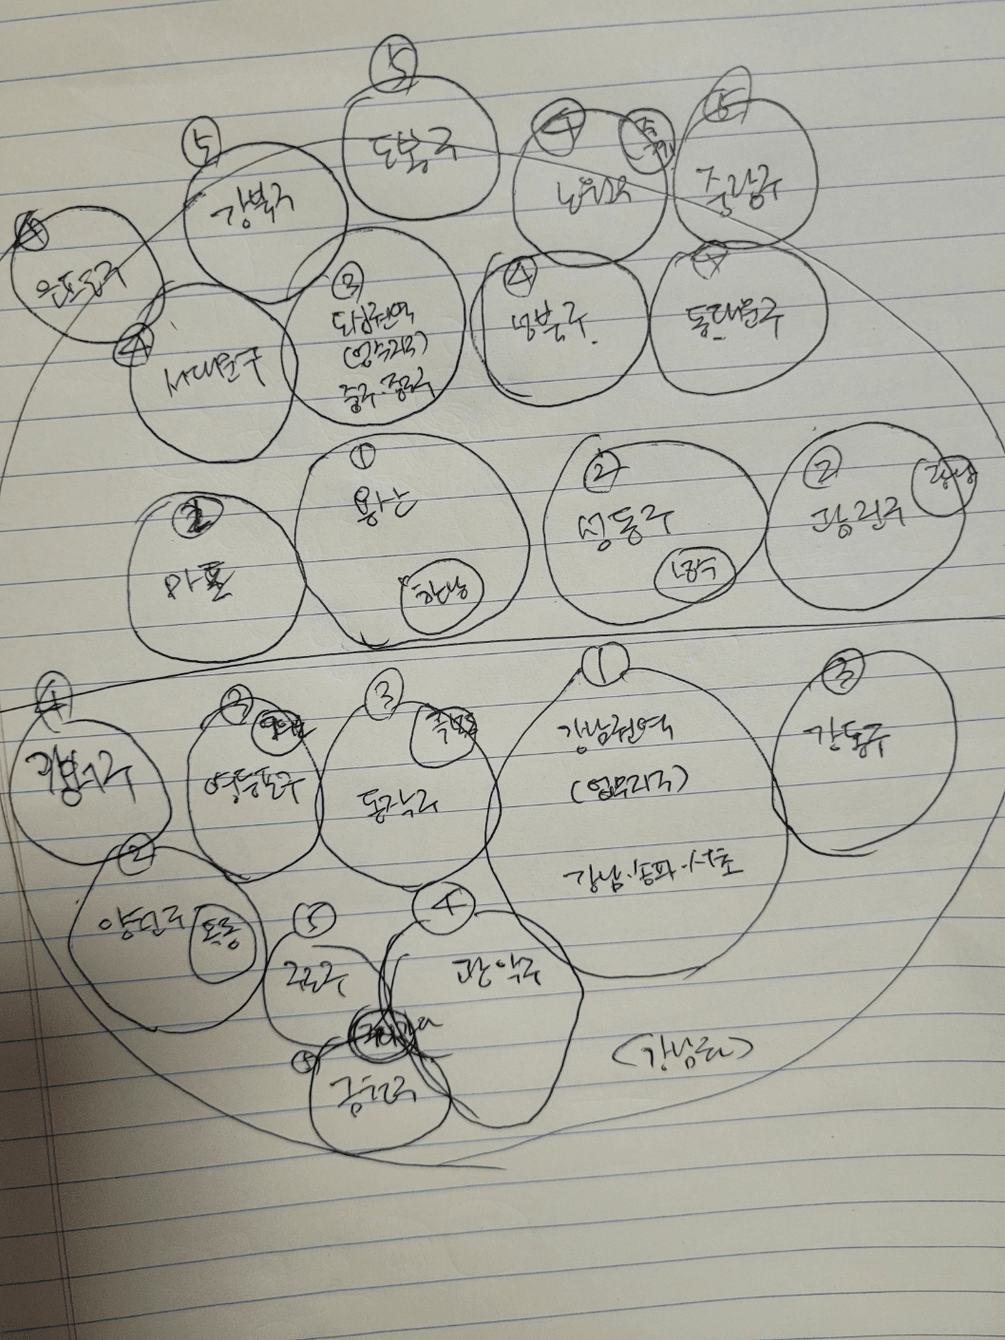 ⑤
도봉구
⑤
강북구
④
노원구
⑤
중랑구
은평구
④
서대문구
③
도심권역
(업무지구)
중구·종로구
④
성북구
④
동대문구
마포
①
용산
한남
②
성동구
성수
②
광진구
광남
④
강서구
③
영등포구
③
동작구
흑석동
①
강남권역
(업무지구)
강남·송파·서초
③
강동구
②
양천구
목동
⑤
구로구
④
관악구
⑤
금천구
(강남권)